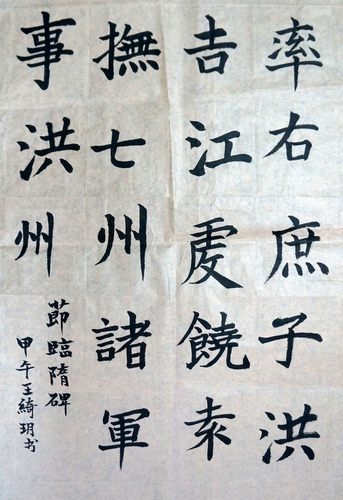 率右庶子洪
吉江虔饒袁
撫七州諸軍
事洪州
節臨隋碑
甲午王綺玥书